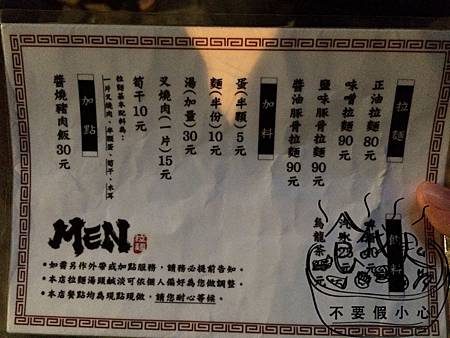 拉麵
正油拉麵 80元
味噌拉麵 90元
鹽味豚骨拉麵 90元
醬油豚骨拉麵 90元
加料
蛋(半顆) 5元
麵(半份) 10元
湯(加量) 30元
叉燒肉(一片) 15元
筍干 10元
拉麵基本配料為:
一片叉燒肉、半顆蛋、筍干、木耳
加點
醬燒豬肉飯 30元
飲料
烏龍茶
MEN
•如需另作外帶或加點服務,請務必提前告知。
•本店拉麵湯頭鹹淡可依個人偏好為您做調整。
•本店餐點均為現點現做,請您耐心等候。
不要假小心